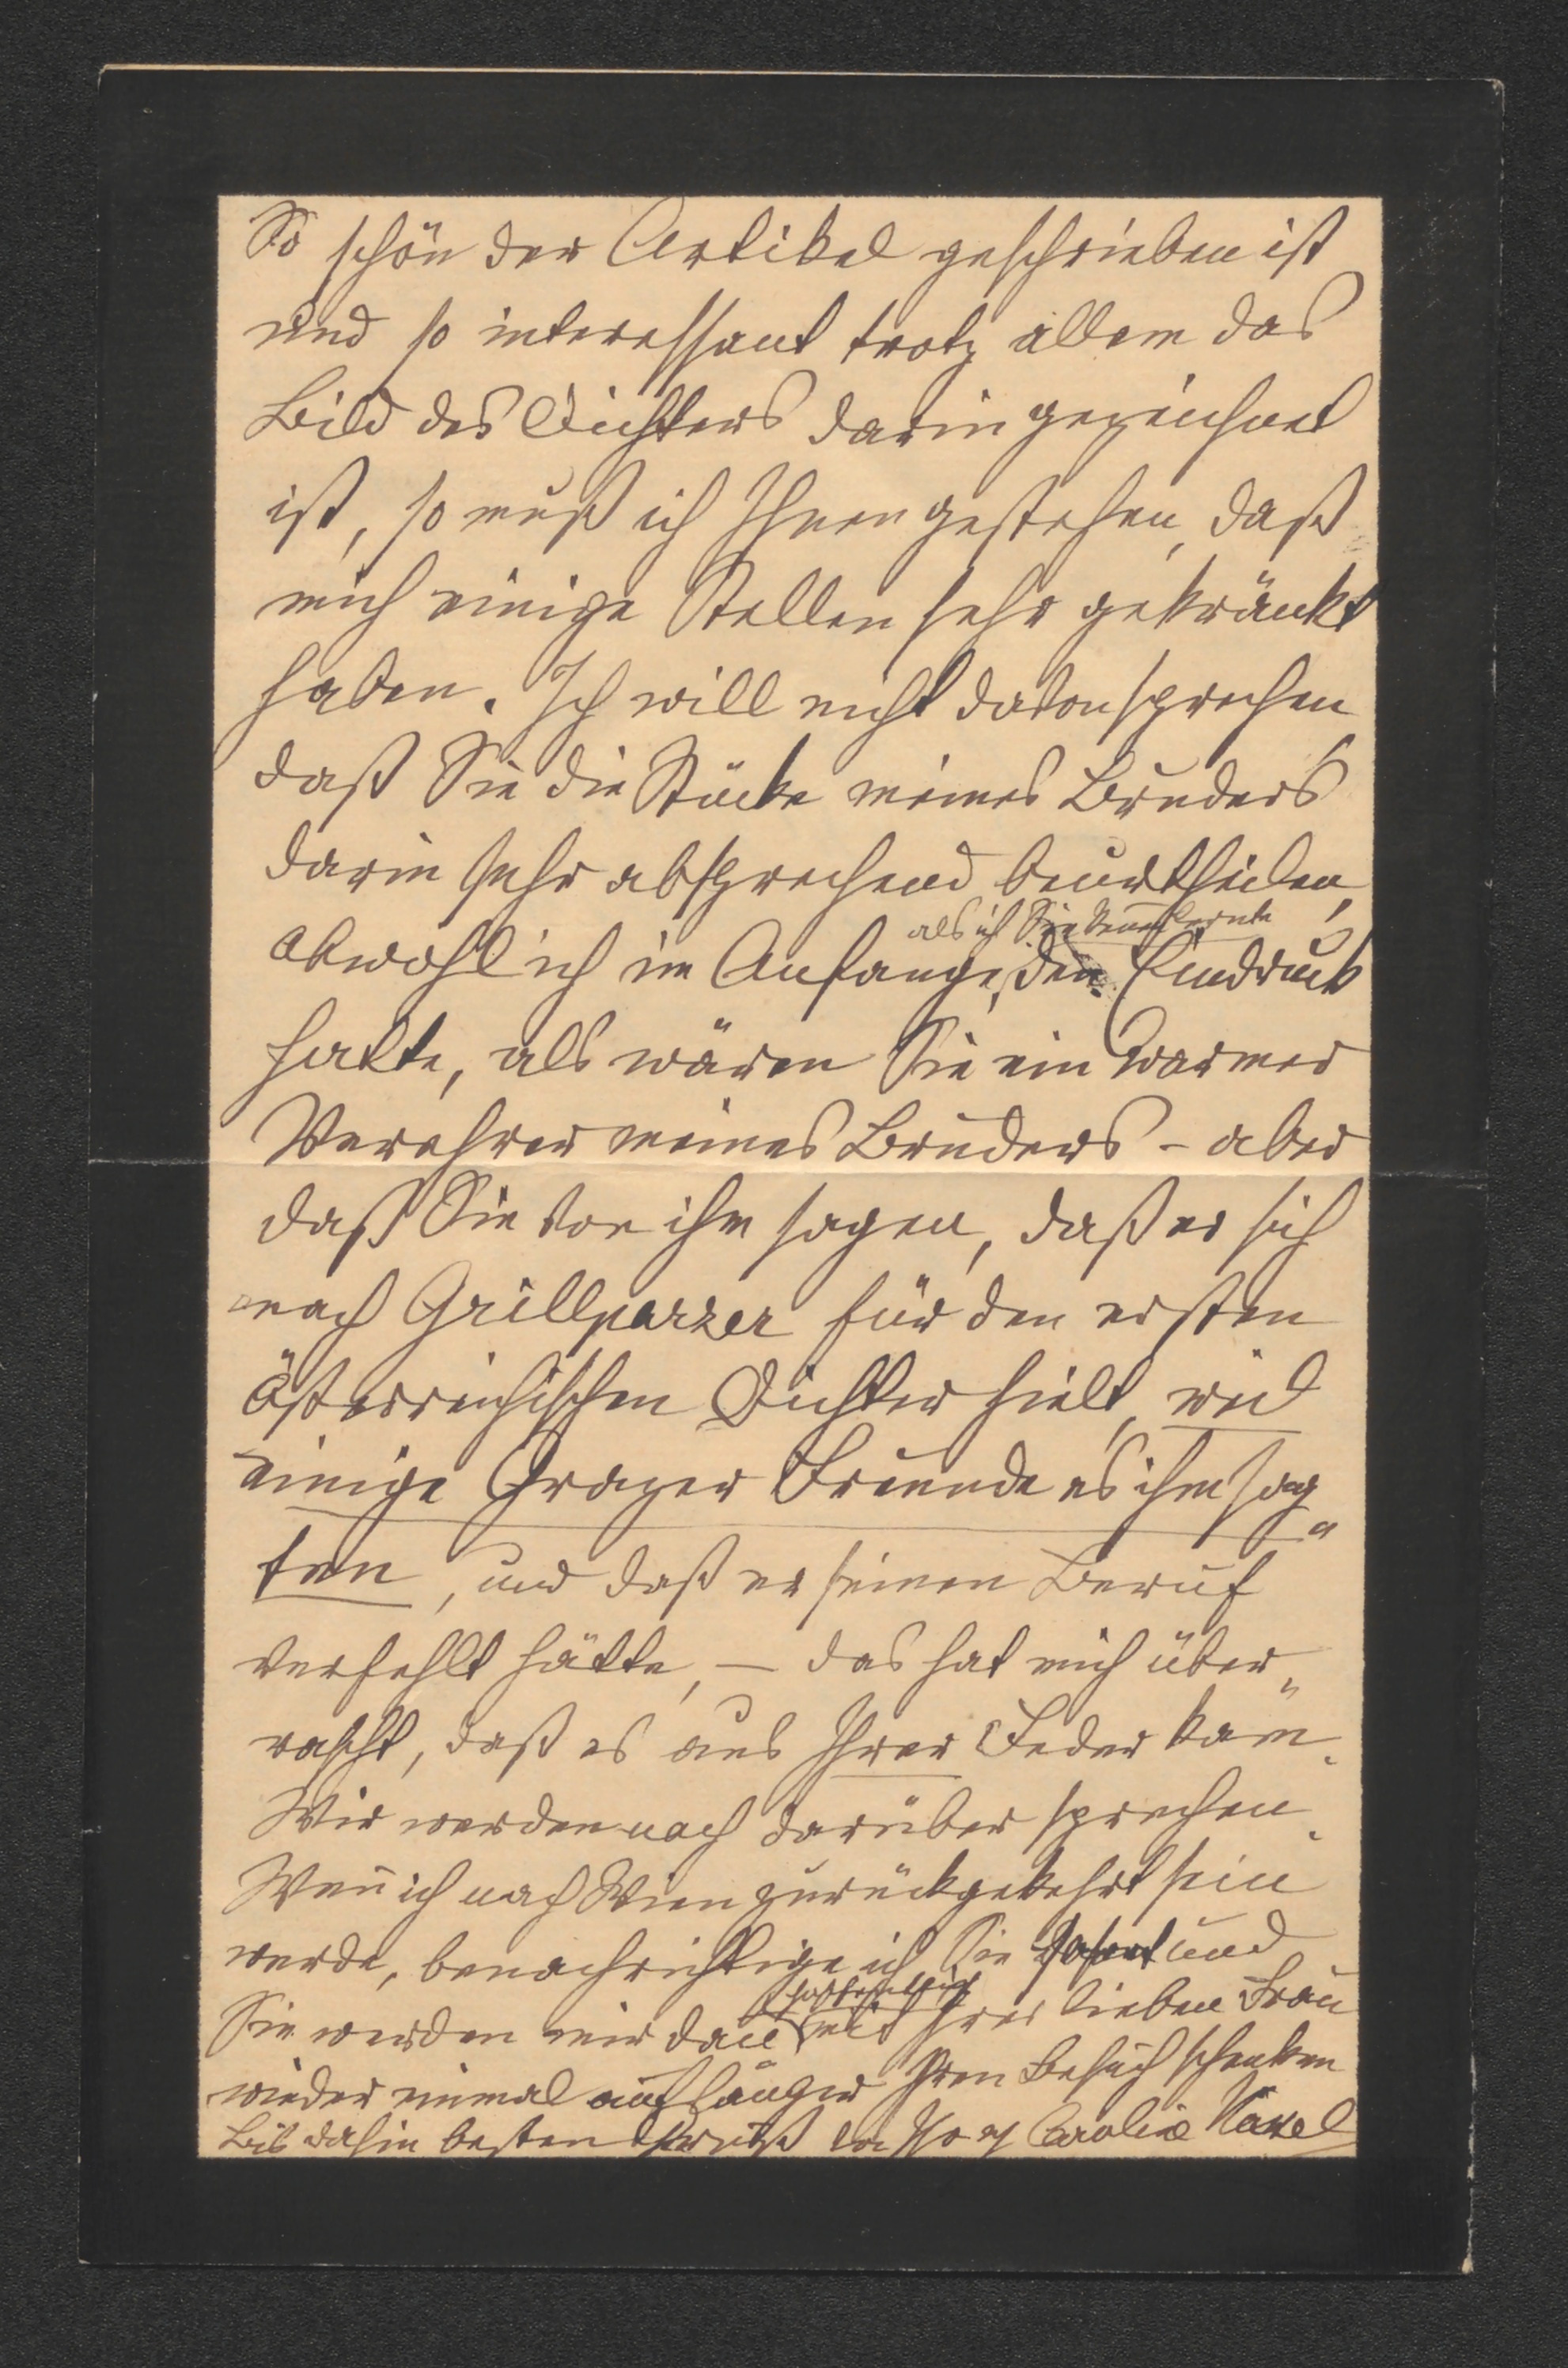 So schön der Artikel geschrieben ist
und so interessant trotz allem das
Bild des Dichters darin gezeichnet
ist, so muß ich Ihnen gestehen, daß
mich einige Stellen sehr gekränkt
haben. Ich will nicht davon sprechen
daß Sie die Stücke meines Bruders
darin sehr absprechend beurtheilen,
als ich Sie kennen lernte
obwohl ich im Anfange, den Eindruck
hatte, als wären Sie ein warmer
Verehrer meines Bruders - aber
daß Sie von ihm sagen, daß er sich
nach Grillparzer für den ersten
österreichischen Dichter hielt, weil
einige Grazer Freunde es ihm sag
ten, und daß er seinen Beruf
verfehlt hätte, — das hat mich über„
rascht, daß es aus Ihrer Feder kam.
Wir werden noch darüber sprechen.
Weñ ich nach Wien zurückgekehrt sein
werde, benachrichtige ich Sie sofort und
hoffentlich
Sie werden mir dañ mit Ihrer lieben Frau
wieder einmal auf länger Ihren Besuch schenken
Bis dahin besten Gruß von Caroline